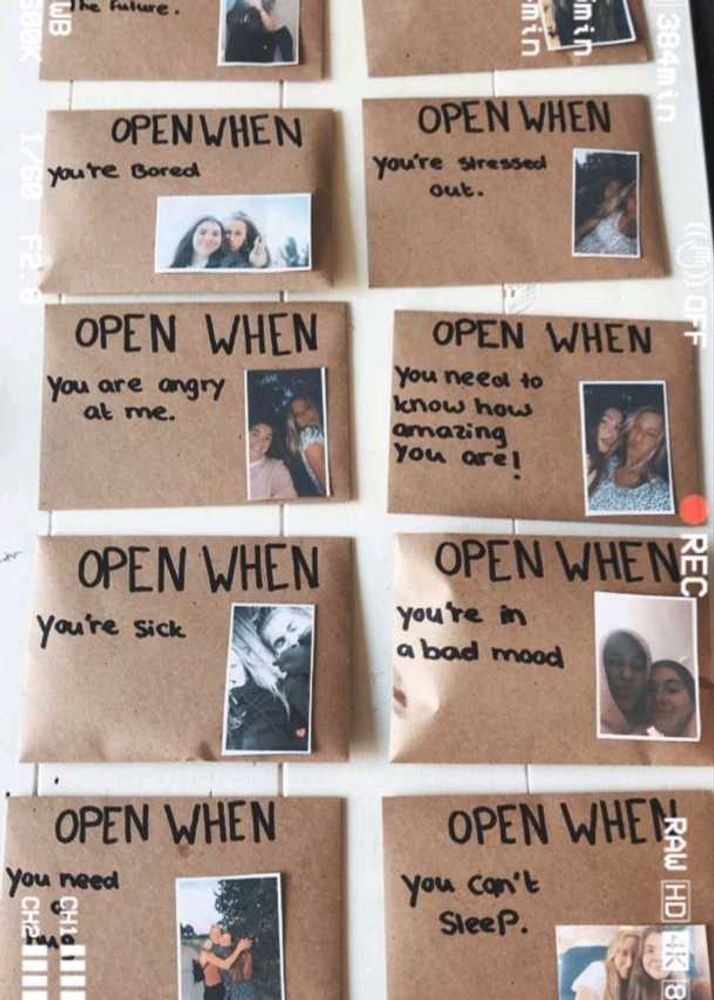 The future.
OPEN WHEN
you're Bored
OPEN WHEN
you're stressed
out.
OPEN WHEN
You are angry
at me.
OPEN WHEN
You need to
know how
amazing
you are!
OPEN WHEN
You're sick
OPEN WHEN
you're in
a bad mood
OPEN WHEN
You need
a
OPEN WHEN
you can't
Sleep.
WB
1/60 F2.8
384min
min
min
OFF
REC
RAW HD 4K
CH1
CH2